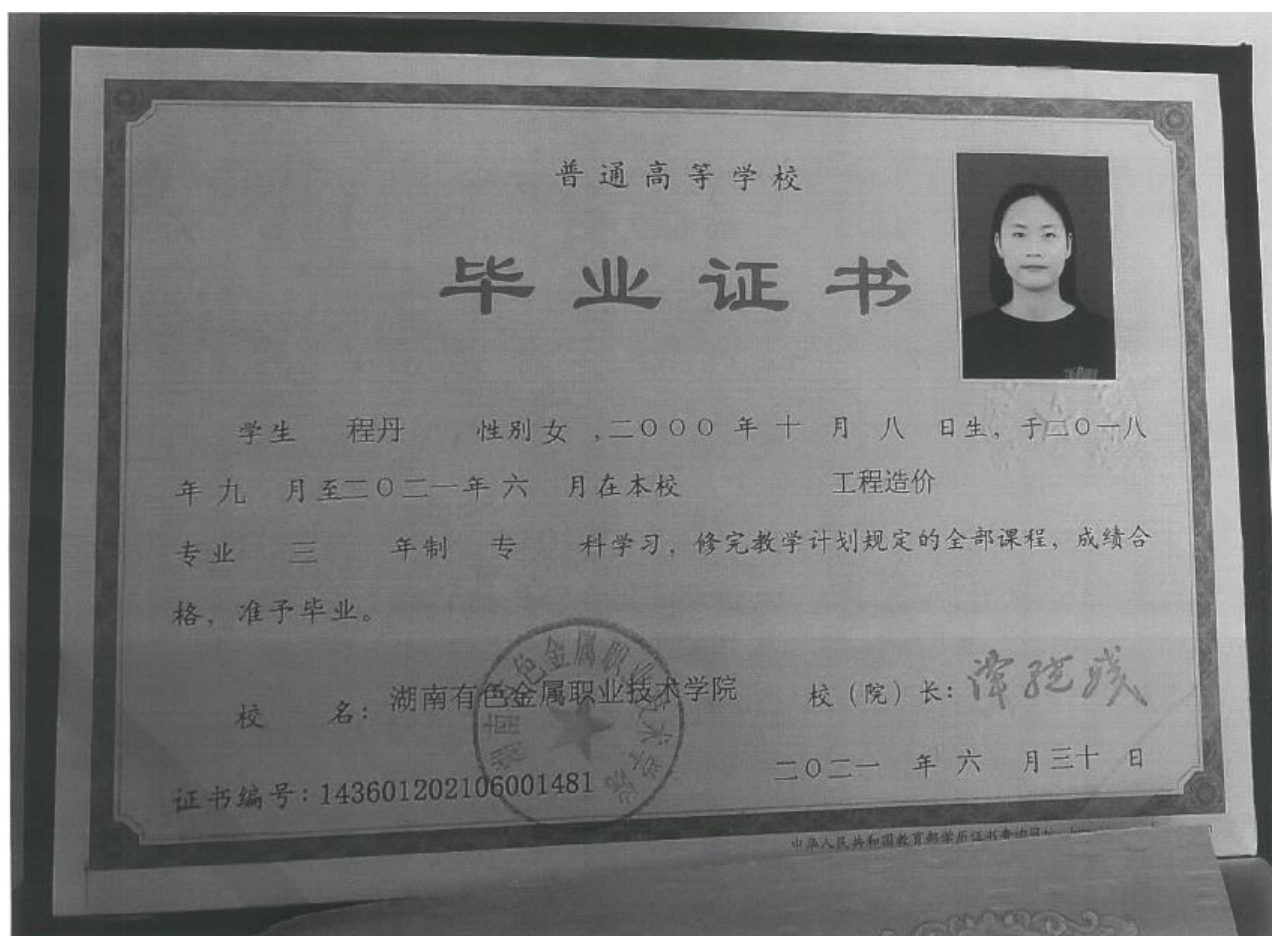 普通高等学校
毕业证书
学生 程丹 性别 女 ,二〇〇〇 年 十 月 八 日生, 于二〇一八
年 九 月至二〇二一年 六 月在本校 工程造价
专业 三 年制 专 科学习, 修完教学计划规定的全部课程, 成绩合
格, 准予毕业。
校 名: 湖南有色金属职业技术学院 校(院)长:
湖南有色金属职业技术学院
证书编号: 143601202106001481 二〇二一 年 六 月三十 日
中华人民共和国教育部学历证书查询网址